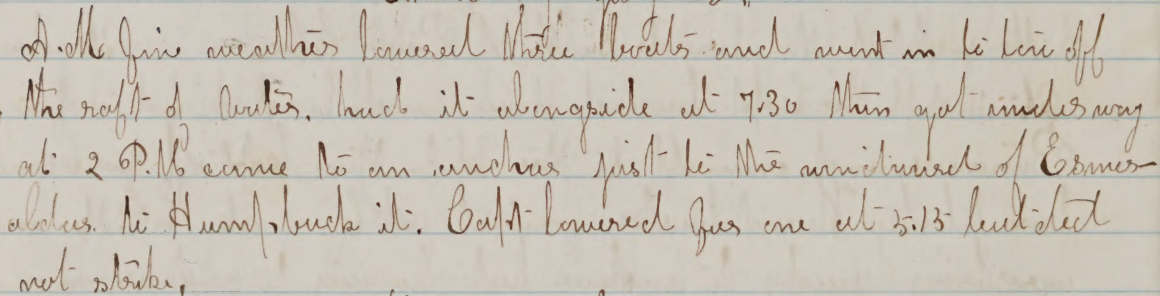 A.M. fine weather lowered three boats and went in to tow off
the raft of water. had it alongside at 7.30 then got underway
at 2 P.M. came to an anchor just to the windward of Esmer-
aldas. to Humpback it. Capt lowered for one at 5.15 but did
not strike.